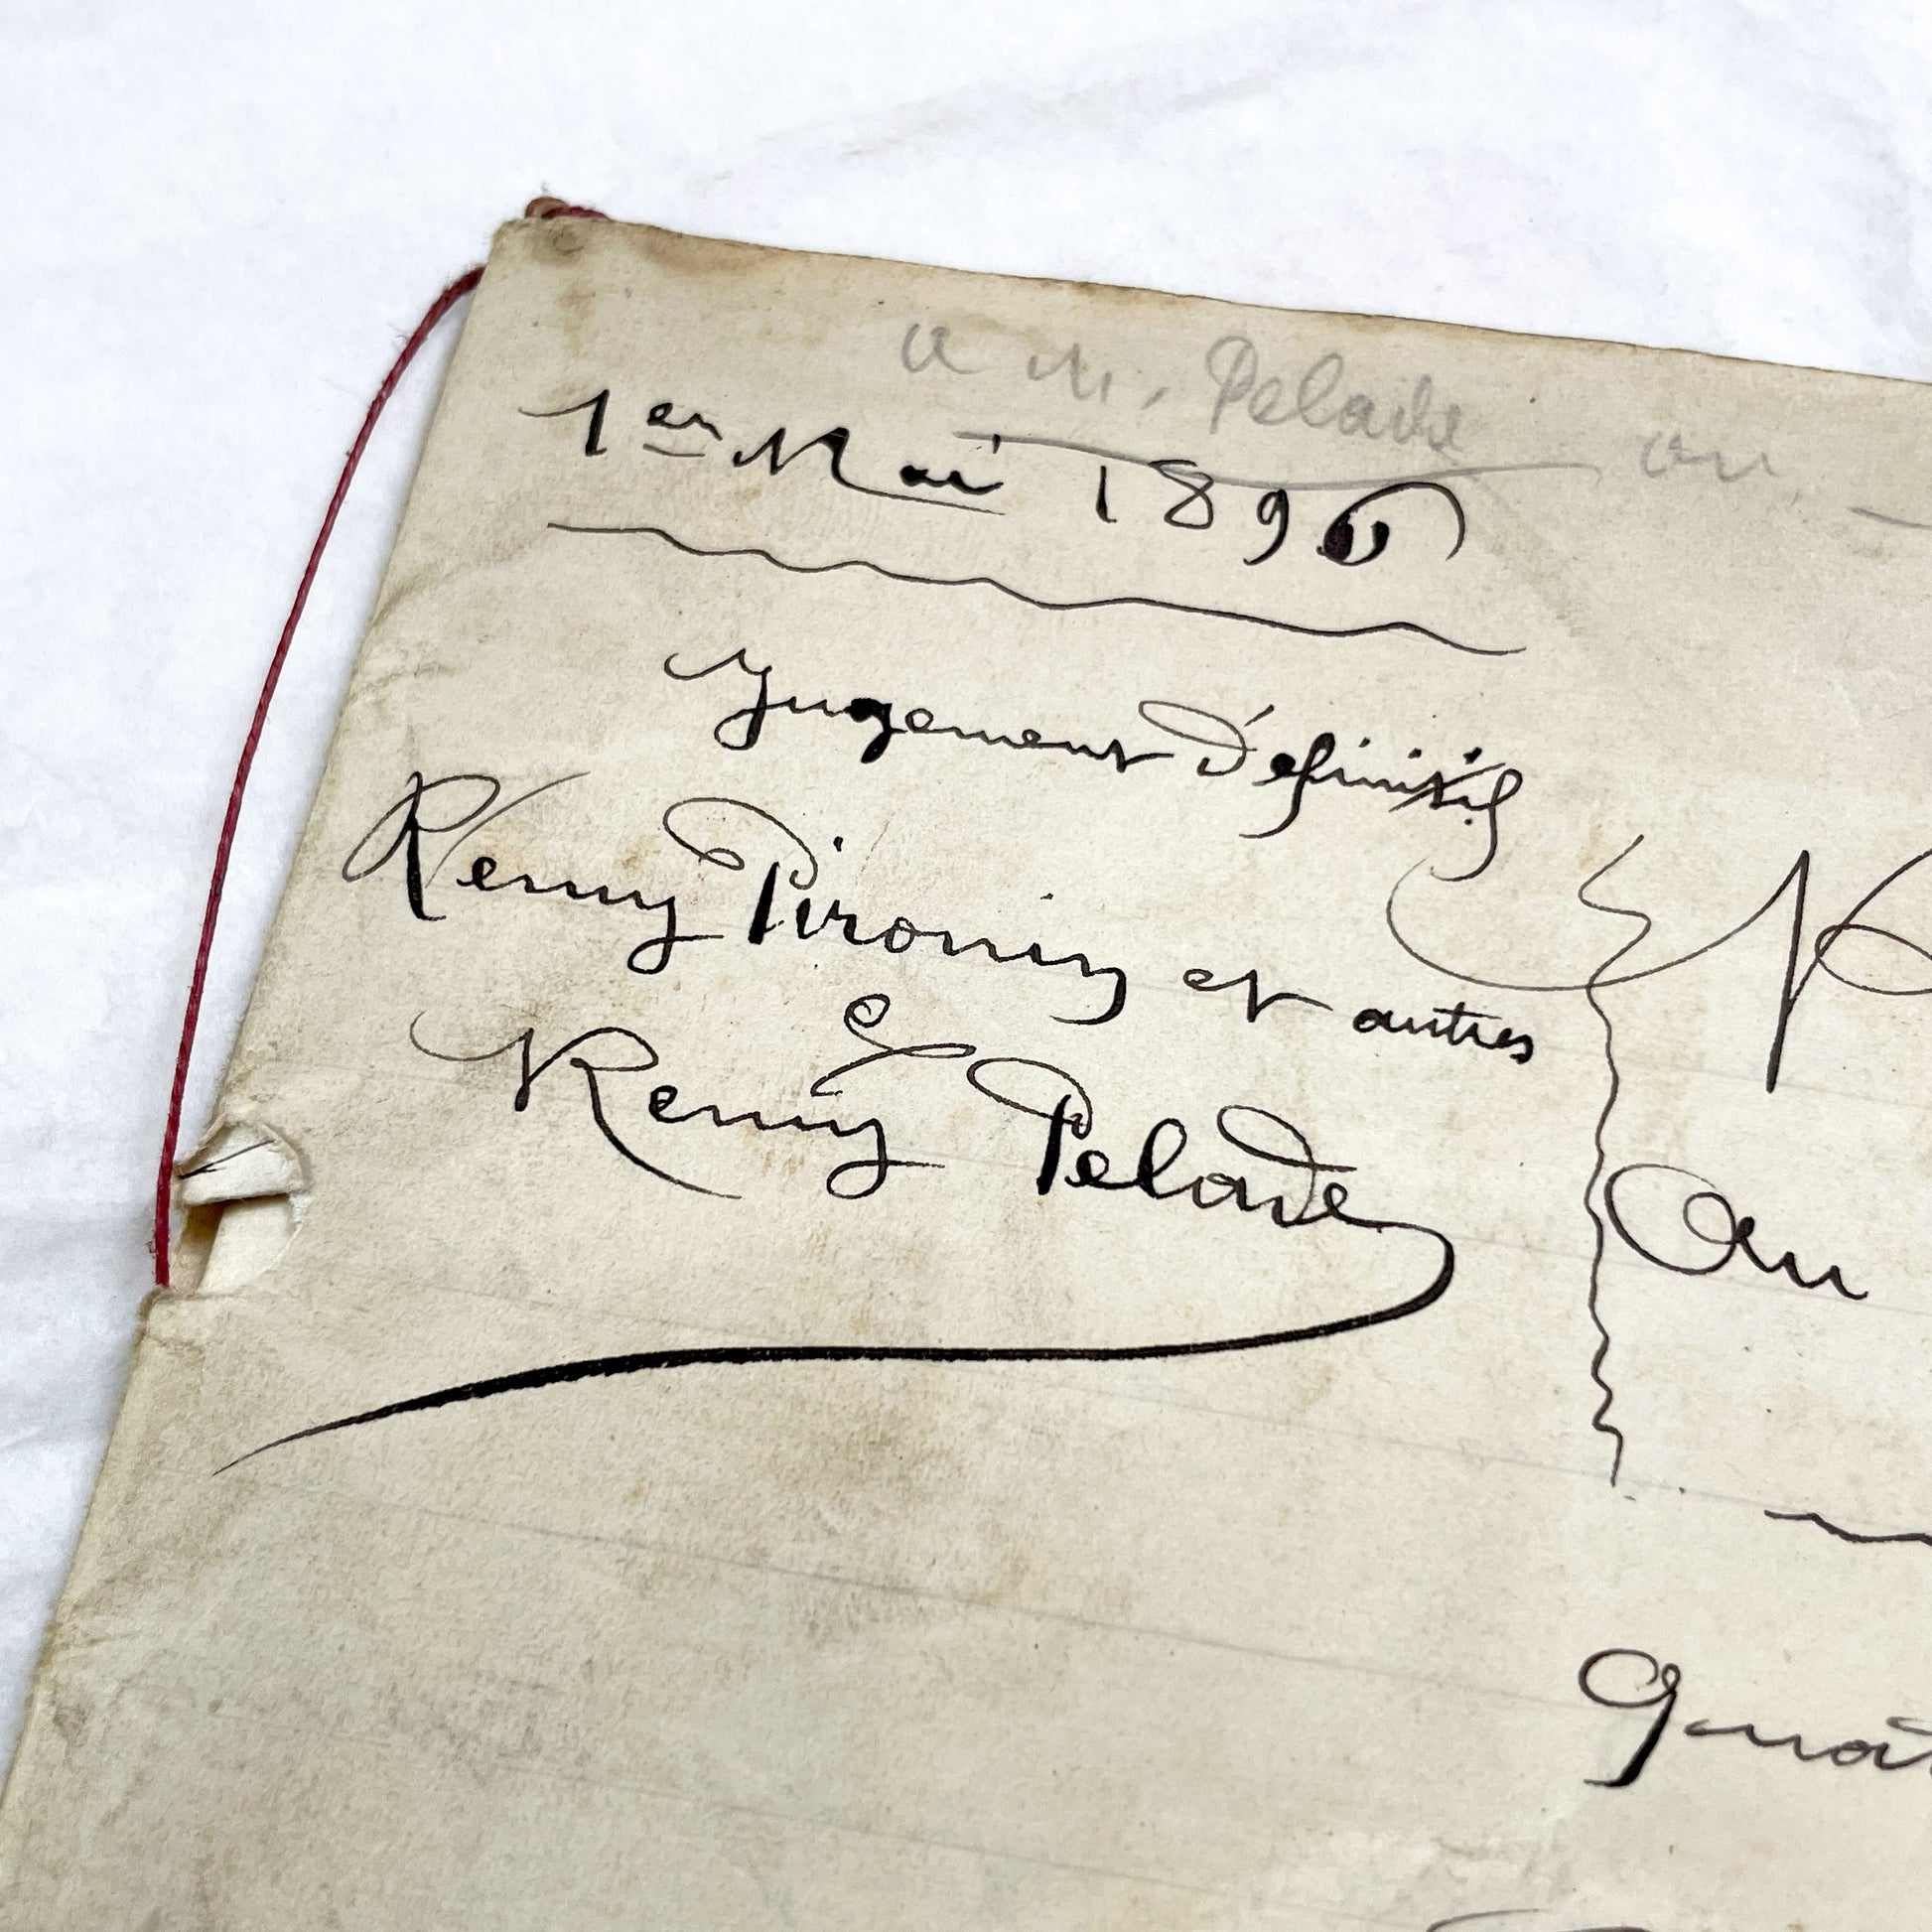 a M. Pelade
1er Mai 1896
Jugement Définitif
Remy Pironin et autres
Remy Pelade
Au
Quat